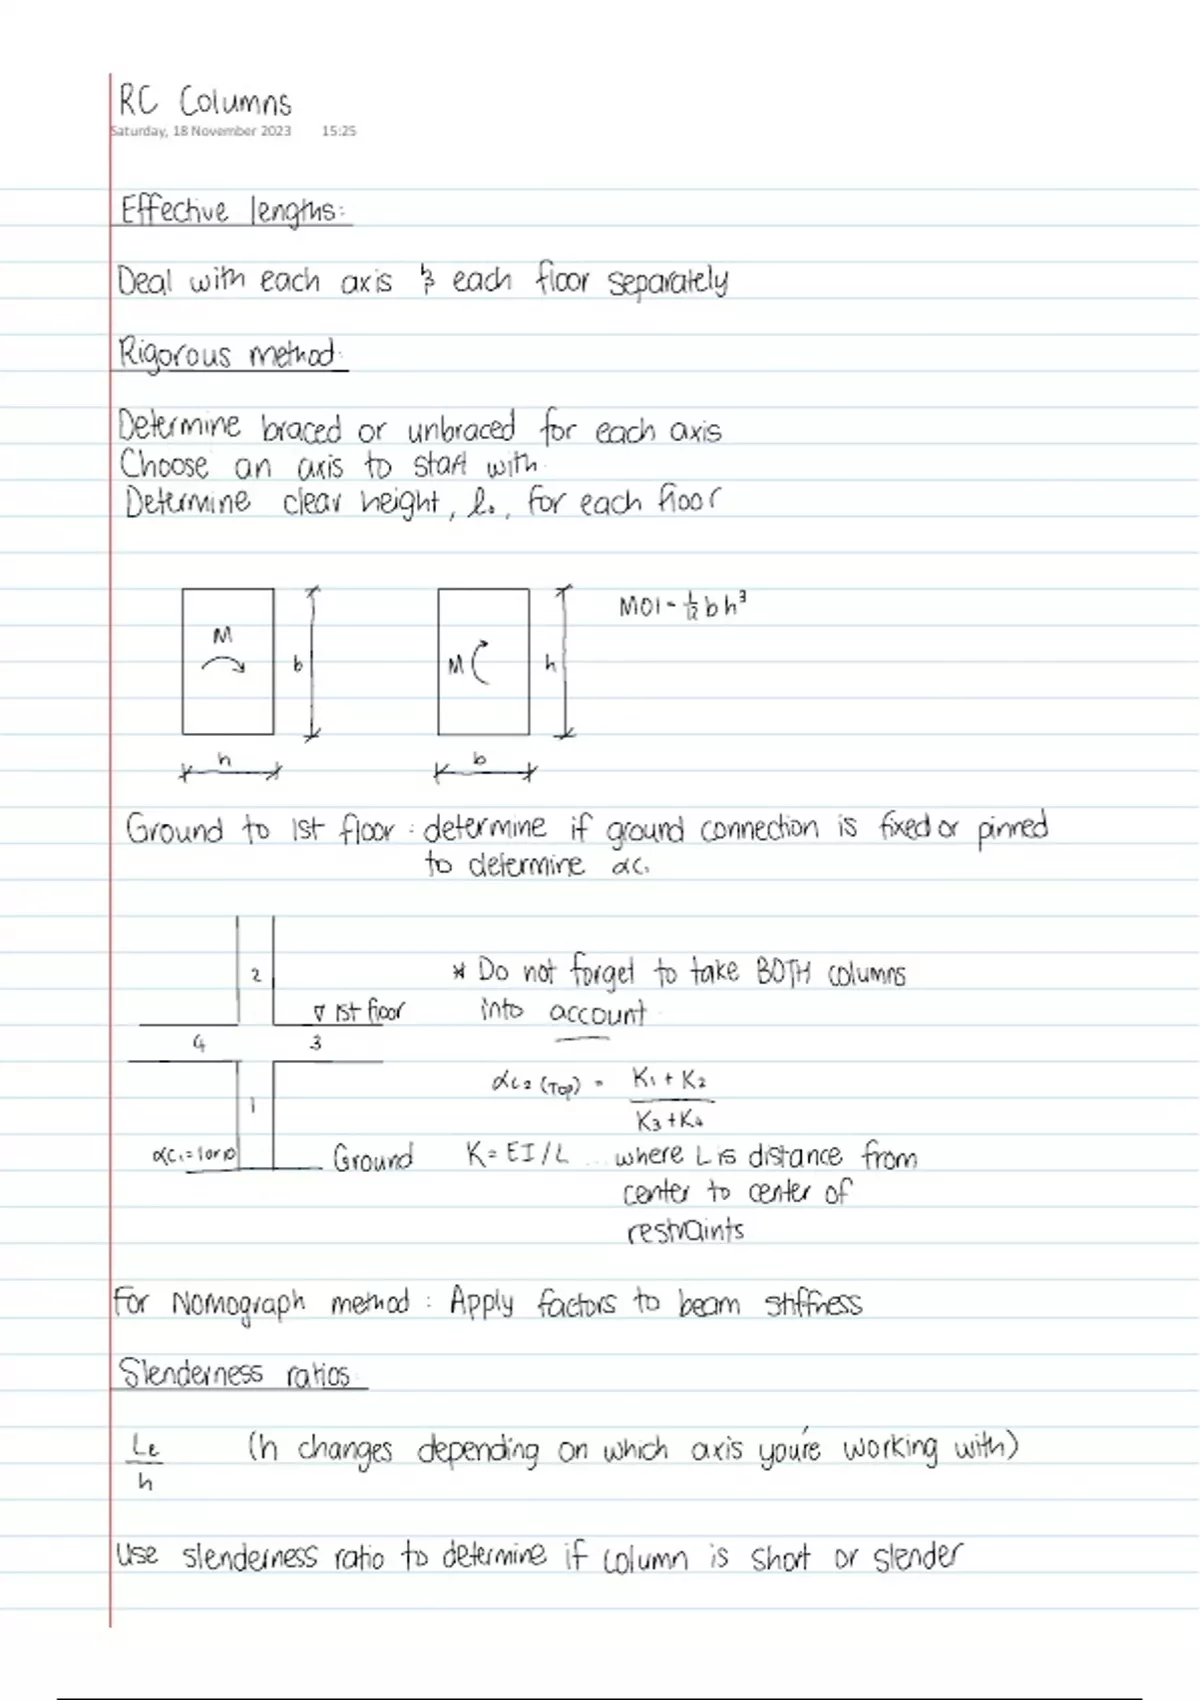 RC Columns
Saturday, 18 November 2023 15:25
Effective lengths:
Deal with each axis & each floor separately
Rigorous method:
Determine braced or unbraced for each axis
Choose an axis to start with.
Determine clear height, lo, for each floor
M b h
M h b
MOI = 1/12 b h³
Ground to 1st floor : determine if ground connection is fixed or pinned
to determine αc₁
2
* Do not forget to take BOTH columns
∇ 1st floor
into account
4 3
αc₂ (Top) = K₁ + K₂ / K₃ + K₄
1
αc₁ = 1 or 10
Ground
K = EI / L ... where L is distance from
center to center of
restraints
For Nomograph method : Apply factors to beam stiffness
Slenderness ratios:
Le / h (h changes depending on which axis you're working with)
Use slenderness ratio to determine if column is short or slender